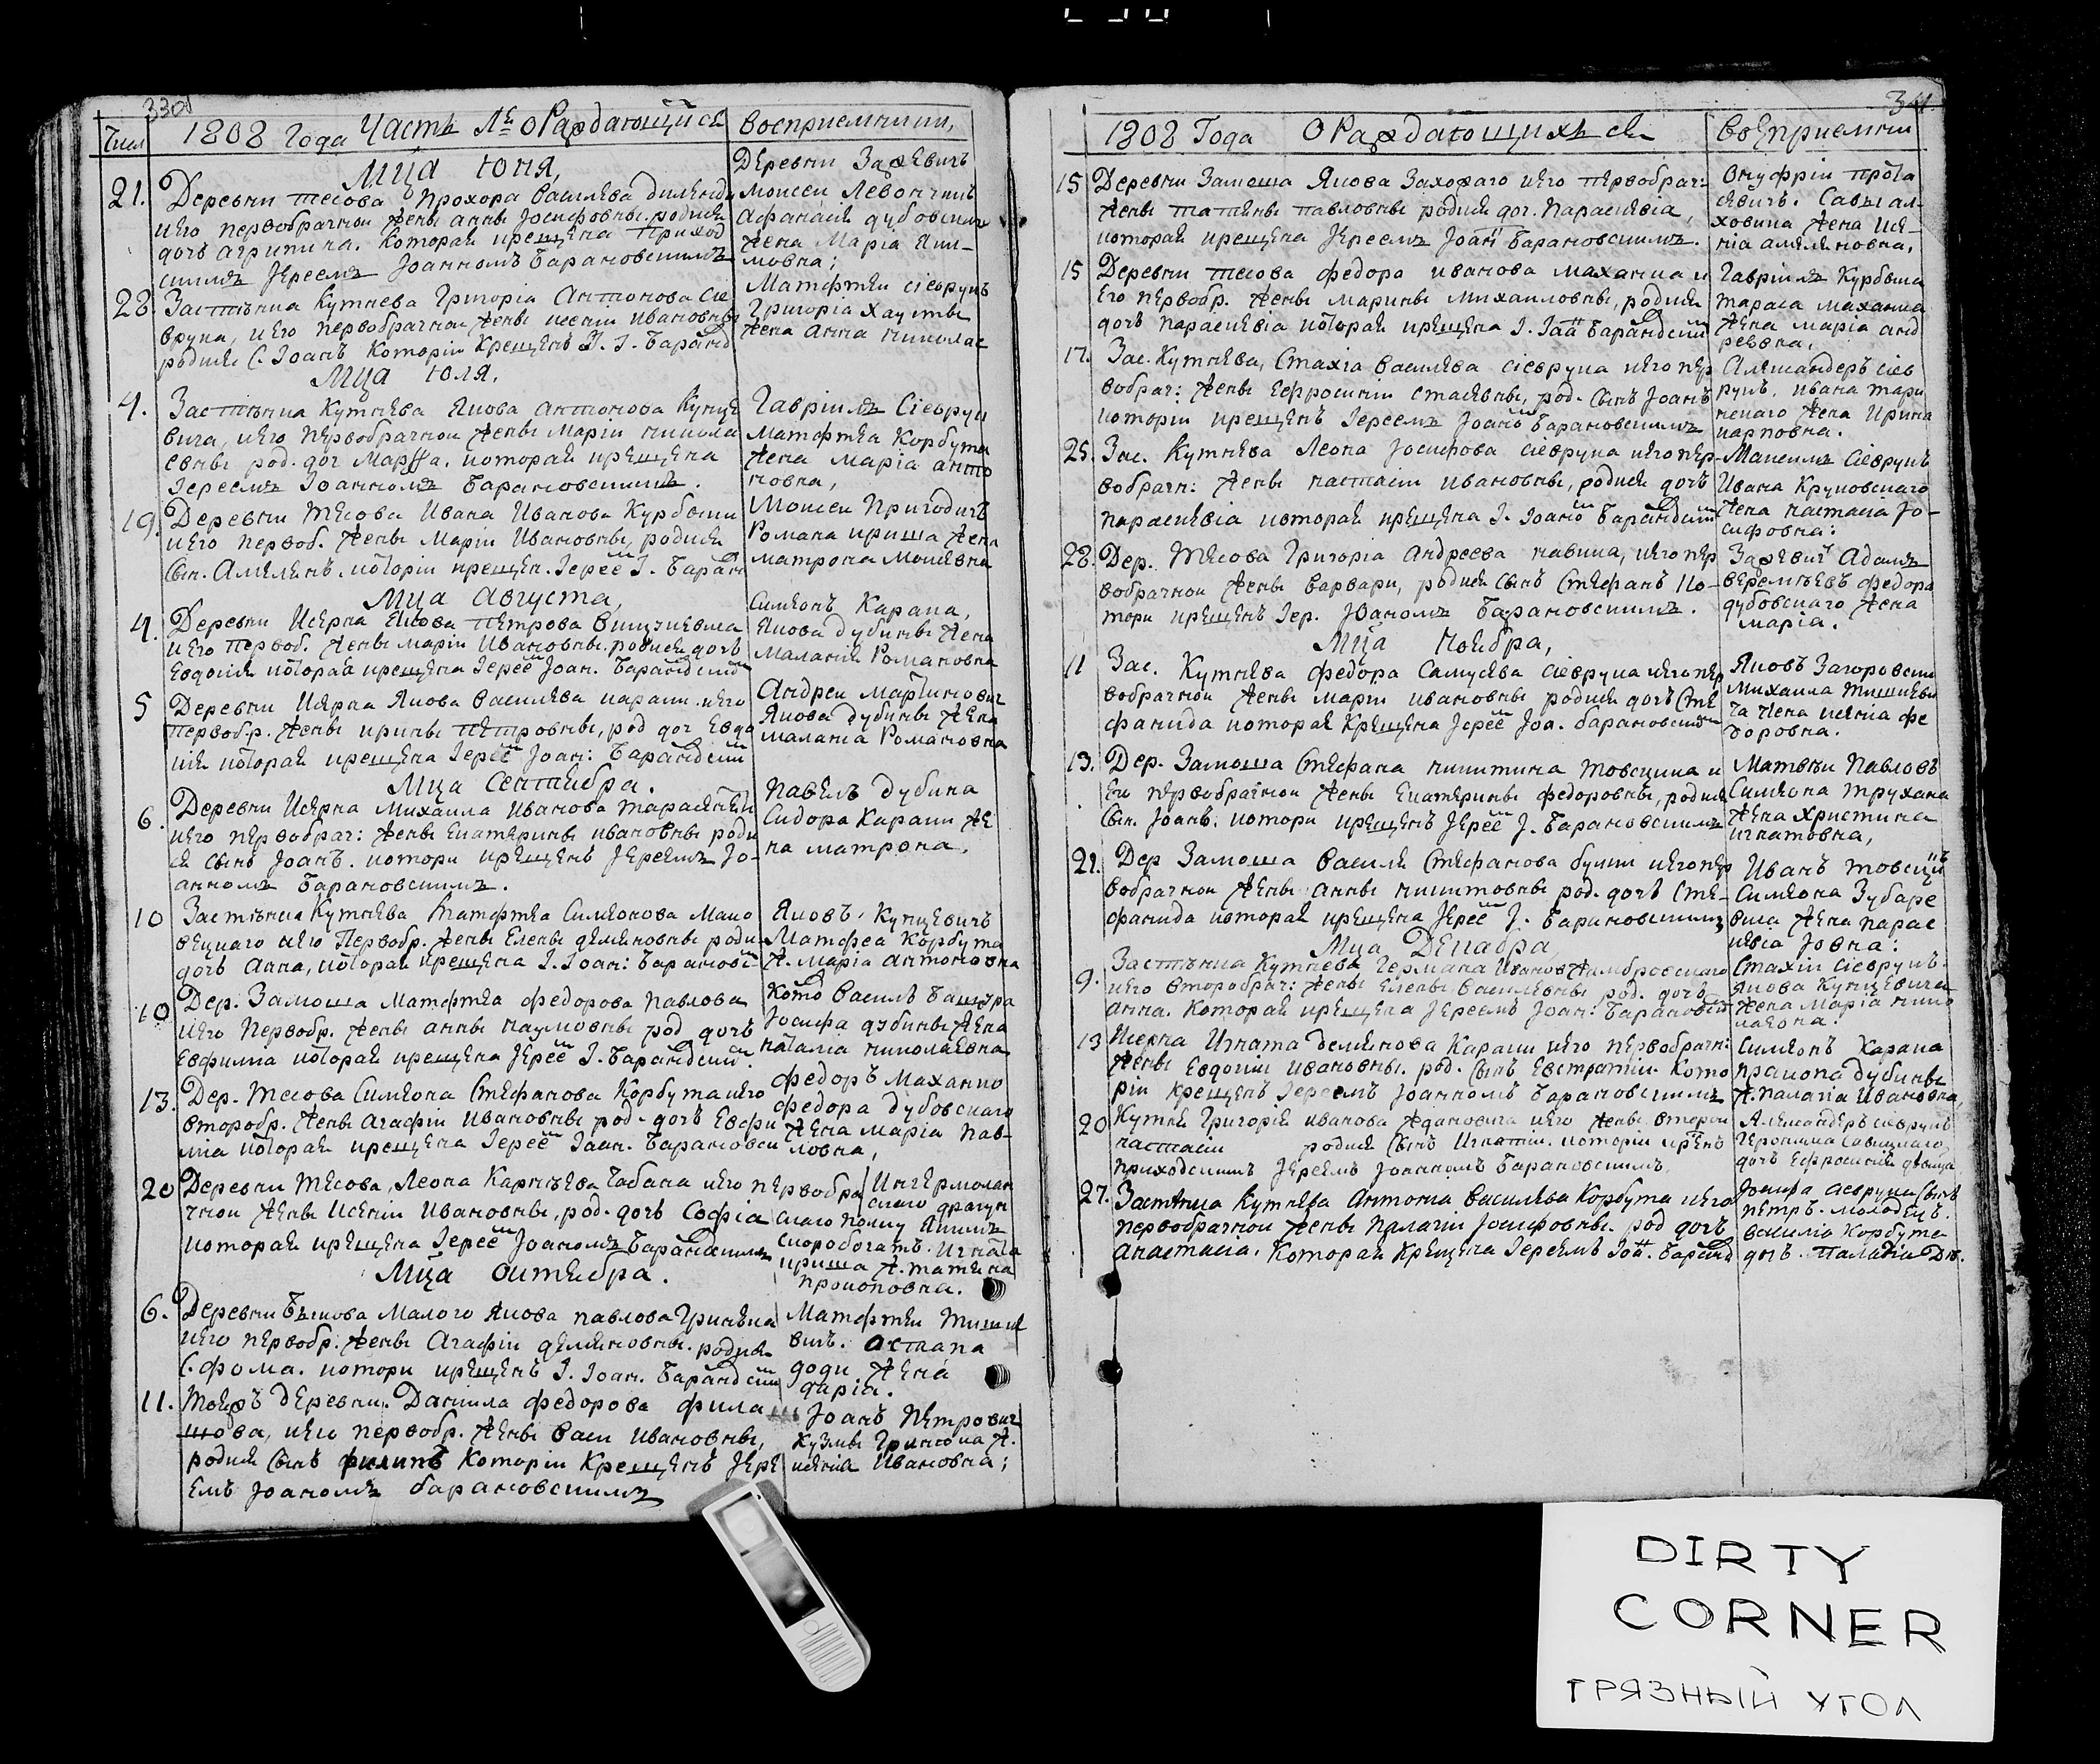 3301
Числ 1808 Года Часть 1ѣ о Раждающийся Восприемники,
Мца Юня,
21. Деревни Тесова Прохора Василева
иего первобрачной жены анны Иосифовны. родися
дочъ агрипина. Которая крещена Приход
ским Иереем Иоанном Барановским
Деревни Зажевичъ
моисеи Левончикъ
афанасия дубовским
жена Мариа Яки-
мовна;
28. Застѣнка Кутнева Григориа Антонова Сие
врука, иего первобрачной жены ксении ивановны
родися С. Иоанъ Которий Крещенъ И. І. Баранов
Матфтей сиеврукъ
Григориа
жена Анна николае
Мца Юля,
4. Застѣнка Кутнева Якова антонова Кунце
вича, иего первобрачной жены Марии никола
евны род. доч Марfа. которая крещена
Иереем Иоанном Барановским.
Гавриил Сиеврук
матфтея Корбута
жена мариа анто
новна,
19. Деревни Тесова Ивана Иванова Курбыки
иего первоб. жены Марии Ивановны, родися
Сын. Амелянъ. которий крещен. Иерее І. Баран
Моисеи Пригодичъ
Романа криша жена
матрона Моисевна
Мца Августа,
4. Деревни Искрка Якова Петрова
иего первоб. жены марии Ивановны. родися дочъ
Евдокия которая крещена Иерее Иоан. Барановский
Симеонъ Карана,
Якова дубины жена
малания Романовна
5 Деревни Искрка Якова Василева карани иего
первобр. жены ирины петровны, род доч Евдо
кия которая крещена Иерее Иоан: Барановский
Андреи Мартинович
Якова дубины жена
малания Романовна
Мца Сентебра.
6. Деревни Искрка Михаила Иванова
иего первобрач: жены Екатерины ивановны роди
ся сынъ Иоанъ. котори крещенъ Иереем Ио-
анном Барановским.
Павелъ дубина
Сидора Карани же
на матрона.
10 Застѣнка Кутнева Матфтеа Симеонова Мако
вецкаго иего Первобр. жены Елены деменовны роди
дочъ Анна, которая крещена І. Иоан: Барановс
Яковъ Кунцевичъ
Матфеа Корбута
ж. Мариа антоновна
10 Дер. Замоша Матфтеа федорова Павлова
иего Первобр. жены анны наумовны род дочъ
Евфимиа которая крещена Иерее І. Барановский
Иосифа дубины жена
наталиа николаевна
13. Дер. Тесова Симеона Стефанова Корбута иего
второбр. жены агафии Ивановны род. дочъ Евфи
миа которая крещена Иерее Иоан. Барановски
федоръ Маханко
федора дубовскаго
жена мариа Пав-
ловна,
20 Деревни Тесова, Леона Карнѣева Чабана иего первобра
чной жены Ксении Ивановны, род. дочъ София
которая крещена Иерее Иоаном Барановским
скаго драгун
скаго полку Яким
Скоробогатъ. Игната
криша ж. татяна
прокоповна.
Мца Октебра.
6. Деревни Бѣкова Малого Якова павлова Гринкена
иего первобр. жены Агафии деменовны. родися
С. фома. котори крещенъ І. Иоан. Барановский
Матфтей
вич. Астапа
доди жена
дариа.
11. Таяжъ деревни. Даниила федорова фила
нова, иего первобр. жены Васи Ивановны,
родися Сынъ филипъ Которий Крещенъ Иере
емъ Иоаном барановским
Иоанъ Петрович
Кузмы Гринкона ж.
ксения Ивановна;
341
1808 Года О Раждающихъ ся Восприемни
15 Деревни Замоша Якова Захожаго иего первобрач:
жены татяны павловны родися доч. Параскевиа,
которая крещена Иереем Иоан Барановским.
Онуфрий прота
севичъ. Савы ал-
ховика жена Ксе-
ниа амеляновна,
15 Деревни тесова федора иванова маханка и
его первобр. жены марины михаиловны, родися
дочъ параскевиа которая крещена І. Іоан Барановский
Гавриил Курбыка
тараса маханка
жена мариа анд
реевна,
17. Зас. Кутнева, Стахиа Василева сиеврука иего пер
вобрач: жены Ефросинии Стасевны, род. Сынъ Иоанъ
которий крещенъ Иереем Иоан Барановским
Александеръ сиев
рукъ, ивана тари
нскаго жена Ирина
карповна.
25. Зас. Кутнева Леона Иосифова сиеврука иего пер-
вобрачн: жены настасии ивановны, родися дочъ
параскевиа которая крещена І. Иоано Барановский
Максим Сиеврукъ
Ивана Круковскаго
жена настасиа Ио-
сифовна:
28. Дер. Тесова Григориа Андреева навика, иего пер
вобрачной жены варвари, родися Сынъ Стефанъ Ко-
тори крещенъ Иер. Иоаном Барановским.
Зажевич Адам
веремѣевъ федора
дубовскаго жена
мариа.
Мца Ноебра,
11 Зас. Кутнева федора Самусева сиеврука иего пер
вобрачной жены марии ивановны родися дочъ Сте
фанида которая Крещена Иерее Иоа. барановский
Яковъ Загоровски
Михаила
ча жена ксениа фе
доровна.
13. Дер. Замоша Стефана никитина товсцика и
его первобрачной жены Екатерины федоровны, родися
Сын. Иоанъ. котори крещенъ Иерее І. Барановским
Матвѣи Павловъ
Симеона трухана
жена христина
игнатовна,
21. Дер Замоша Василя Стефанова букши иего пер
вобрачной жены анны никитовны род. дочъ Сте-
фанида которая крещена Иерее І. Барановским
Иванъ товсцик
Симеона Зубаре
вича жена парас
кевиа Иовна:
Мца Декабра,
9. Застѣнка Кутнева Германа Иванов
иего второбрач: жены Елены Василевны род. дочъ
анна. Которая крещена Иереемъ Иоан: Барановский
Стахий сиеврукъ.
Якова Кунцевича
жена Мариа нико
лаевна.
13 Искрка Игната деменова Карани иего первобрачн:
жены Евдокии ивановны. род. Сынъ Евстратий. Кото
рий крещенъ Иереемъ Иоанном Барановским
Симеонъ Карана
прокопа дубины
ж. палагиа Ивановна,
20 Кутнев Григория иванова Адановича иего жены второй
настасии родися Сынъ Игнатий. которий кренъ
приходскимъ Иереемъ Иоанномъ Барановскимъ.
Александеръ сиеврукъ
Геронима Савицкаго
дочъ Ефросиния двица
27. Застѣнка Кутнева Антона Василева Корбута иего
первобрачной жены палагии Иосифовны. род дочъ
анастасиа. Которая Крещена Иереемъ Иоа. Баранов
Иосифа сиеврука Сынъ
петръ. молодецъ.
Василиа Корбута
дочъ. Палагиа Дв.
DIRTY
CORNER
ГРЯЗНЫЙ УГОЛ